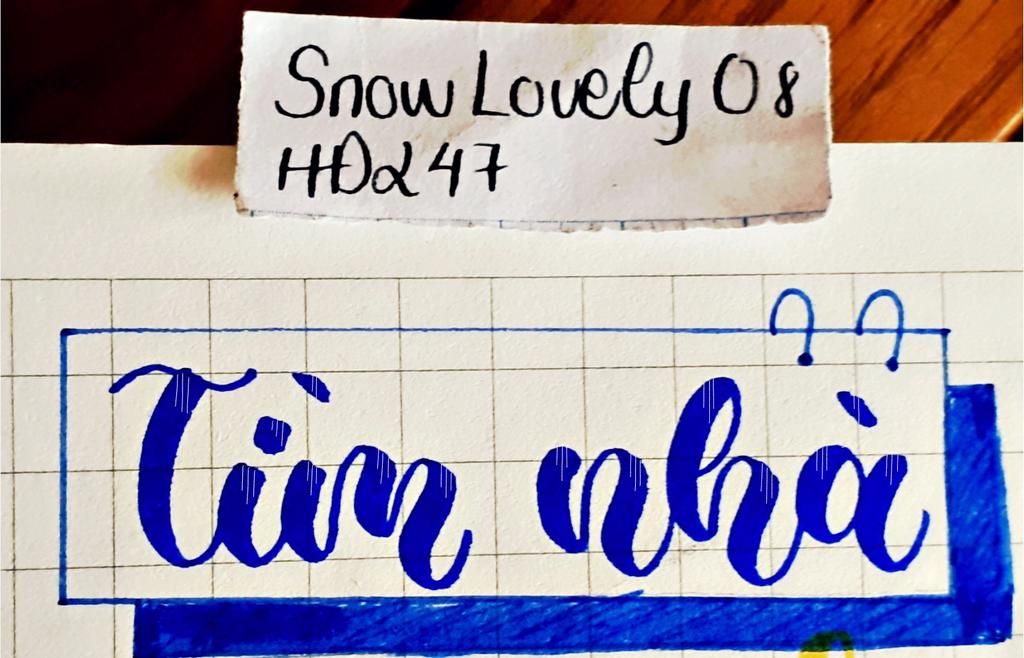 Snow Lovely 08
HDα 47
Tìm nhà